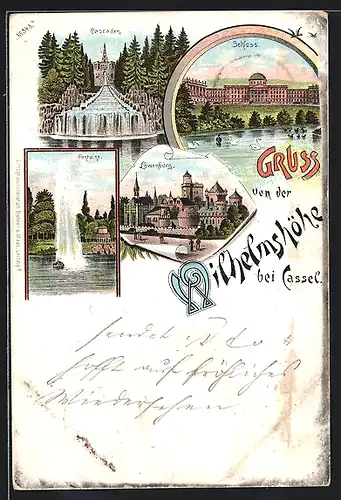 Cascaden.
Schloss.
Fontaine.
Löwenburg.
GRUSS
von der
Wilhelmshöhe
bei Cassel.
sendet
hofft auf fröhliches
Wiedersehen